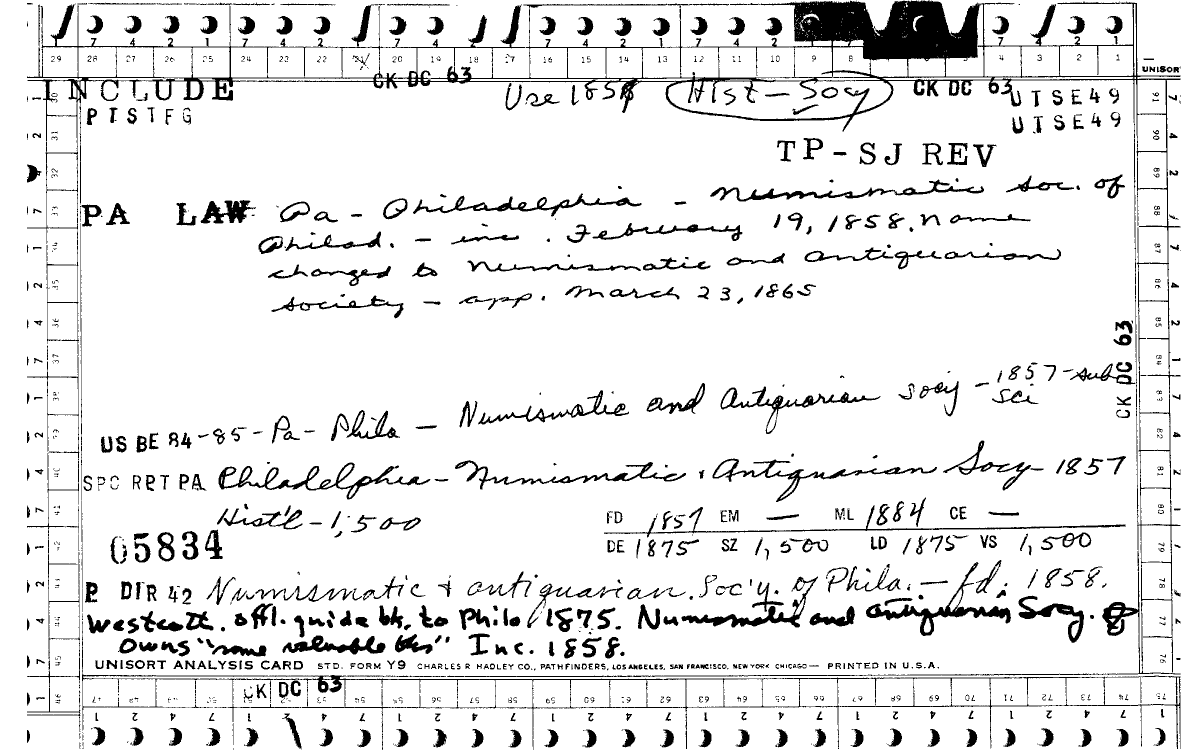 7 4 2 1 7 4 2 1 7 4 2 1 7 4 2 1
29 28 27 26 25 24 23 22 21 20 19 18 17 16 15 14 13 12 11 10 9 8 4 3 2 1
UNISORT
CK DC 63
INCLUDE Use 1858 Hist-Socy CK DC 63 UTSE49
PTSTFG UTSE49
TP-SJ REV
PA LAW Pa - Philadelphia - Numismatic Soc. of
Philad. - inc. February 19, 1858. Name
changed to Numismatic and Antiquarian
Society - app. March 23, 1865
CK DC 63
US BE 84-85-Pa-Phila - Numismatic and Antiquarian Socy - 1857-sub
Sci
SPC RPT PA Philadelphia - Numismatic & Antiquarian Socy - 1857
Hist'l - 1,500
FD 1857 EM — ML 1884 CE —
05834
DE 1875 SZ 1,500 LD 1875 VS 1,500
P DIR 42 Numismatic & antiquarian Soc'y. of Phila. - fd. 1858.
Westcott. offl. guide bk. to Phila 1875. Numismatic and Antiquarian Socy. of
Owns "some valuable bks" Inc. 1858.
UNISORT ANALYSIS CARD STD. FORM Y9 CHARLES R HADLEY CO., PATHFINDERS, LOS ANGELES, SAN FRANCISCO, NEW YORK CHICAGO — PRINTED IN U.S.A.
CK DC 63